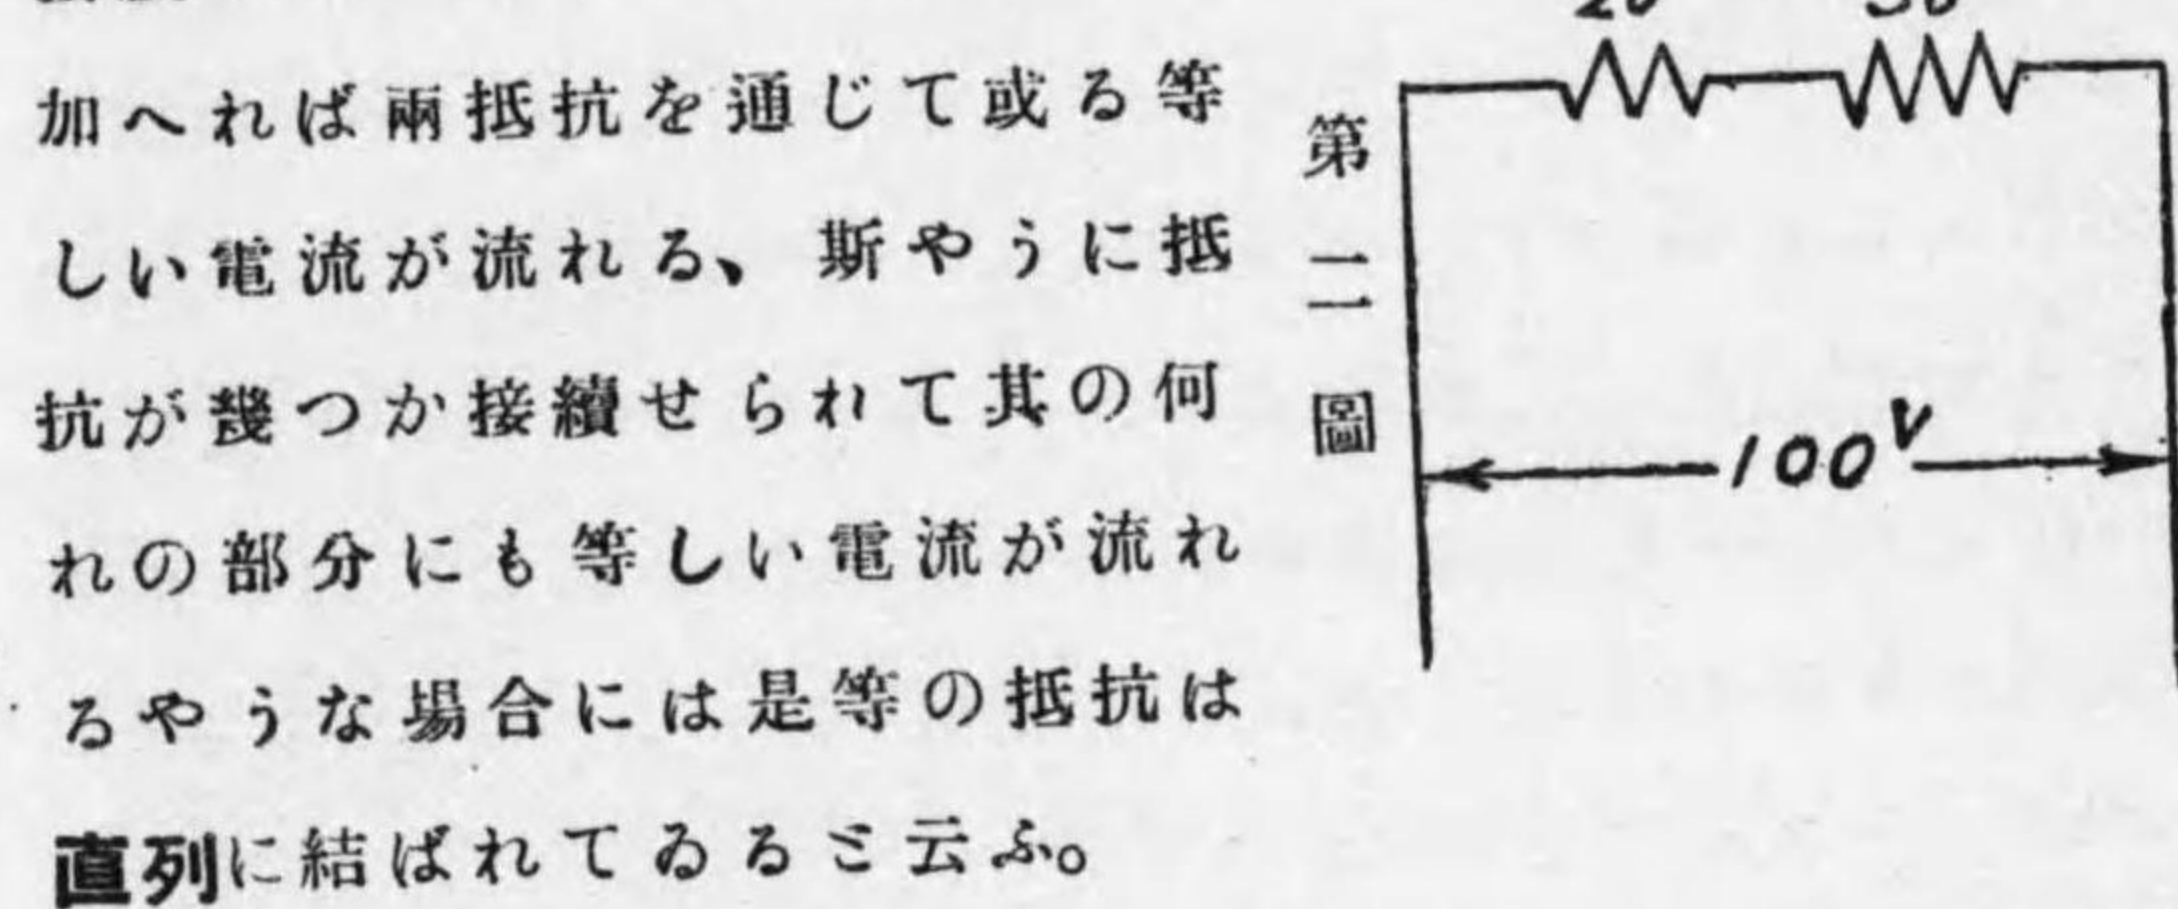 加へれば兩抵抗を通じて或る等
しい電流が流れる、斯やうに抵
抗が幾つか接續せられて其の何
れの部分にも等しい電流が流れ
るやうな場合には是等の抵抗は
直列に結ばれてゐるミ云ふ。
第二圖
100V